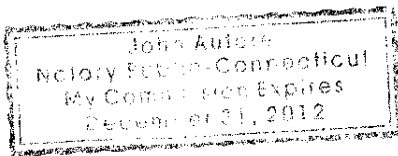 John
Notary Public-Connecticut
My Commission Expires
December 31, 2012